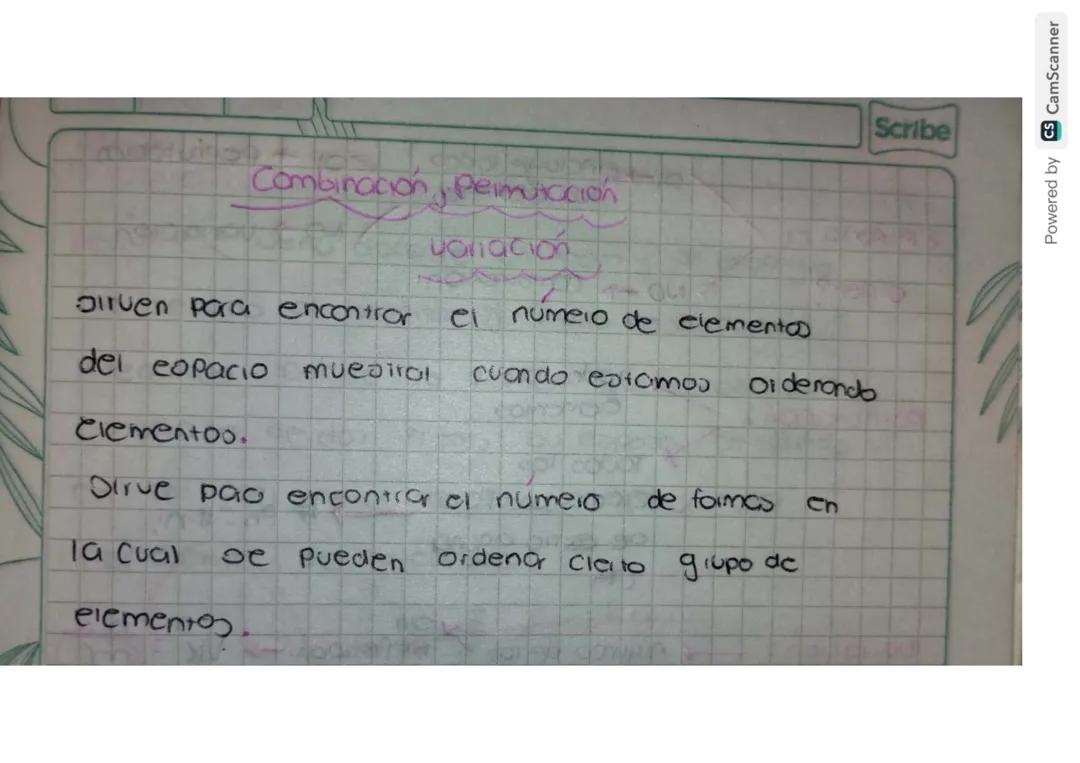 Scribe
Combinación, Permutación
variación
Sirven para encontrar el número de elementos
del espacio muestral cuando estamos orderando
elementos.
Sirve paa encontrar el número de formas en
la cual se pueden ordenar cierto grupo de
elementos.
Powered by CS CamScanner